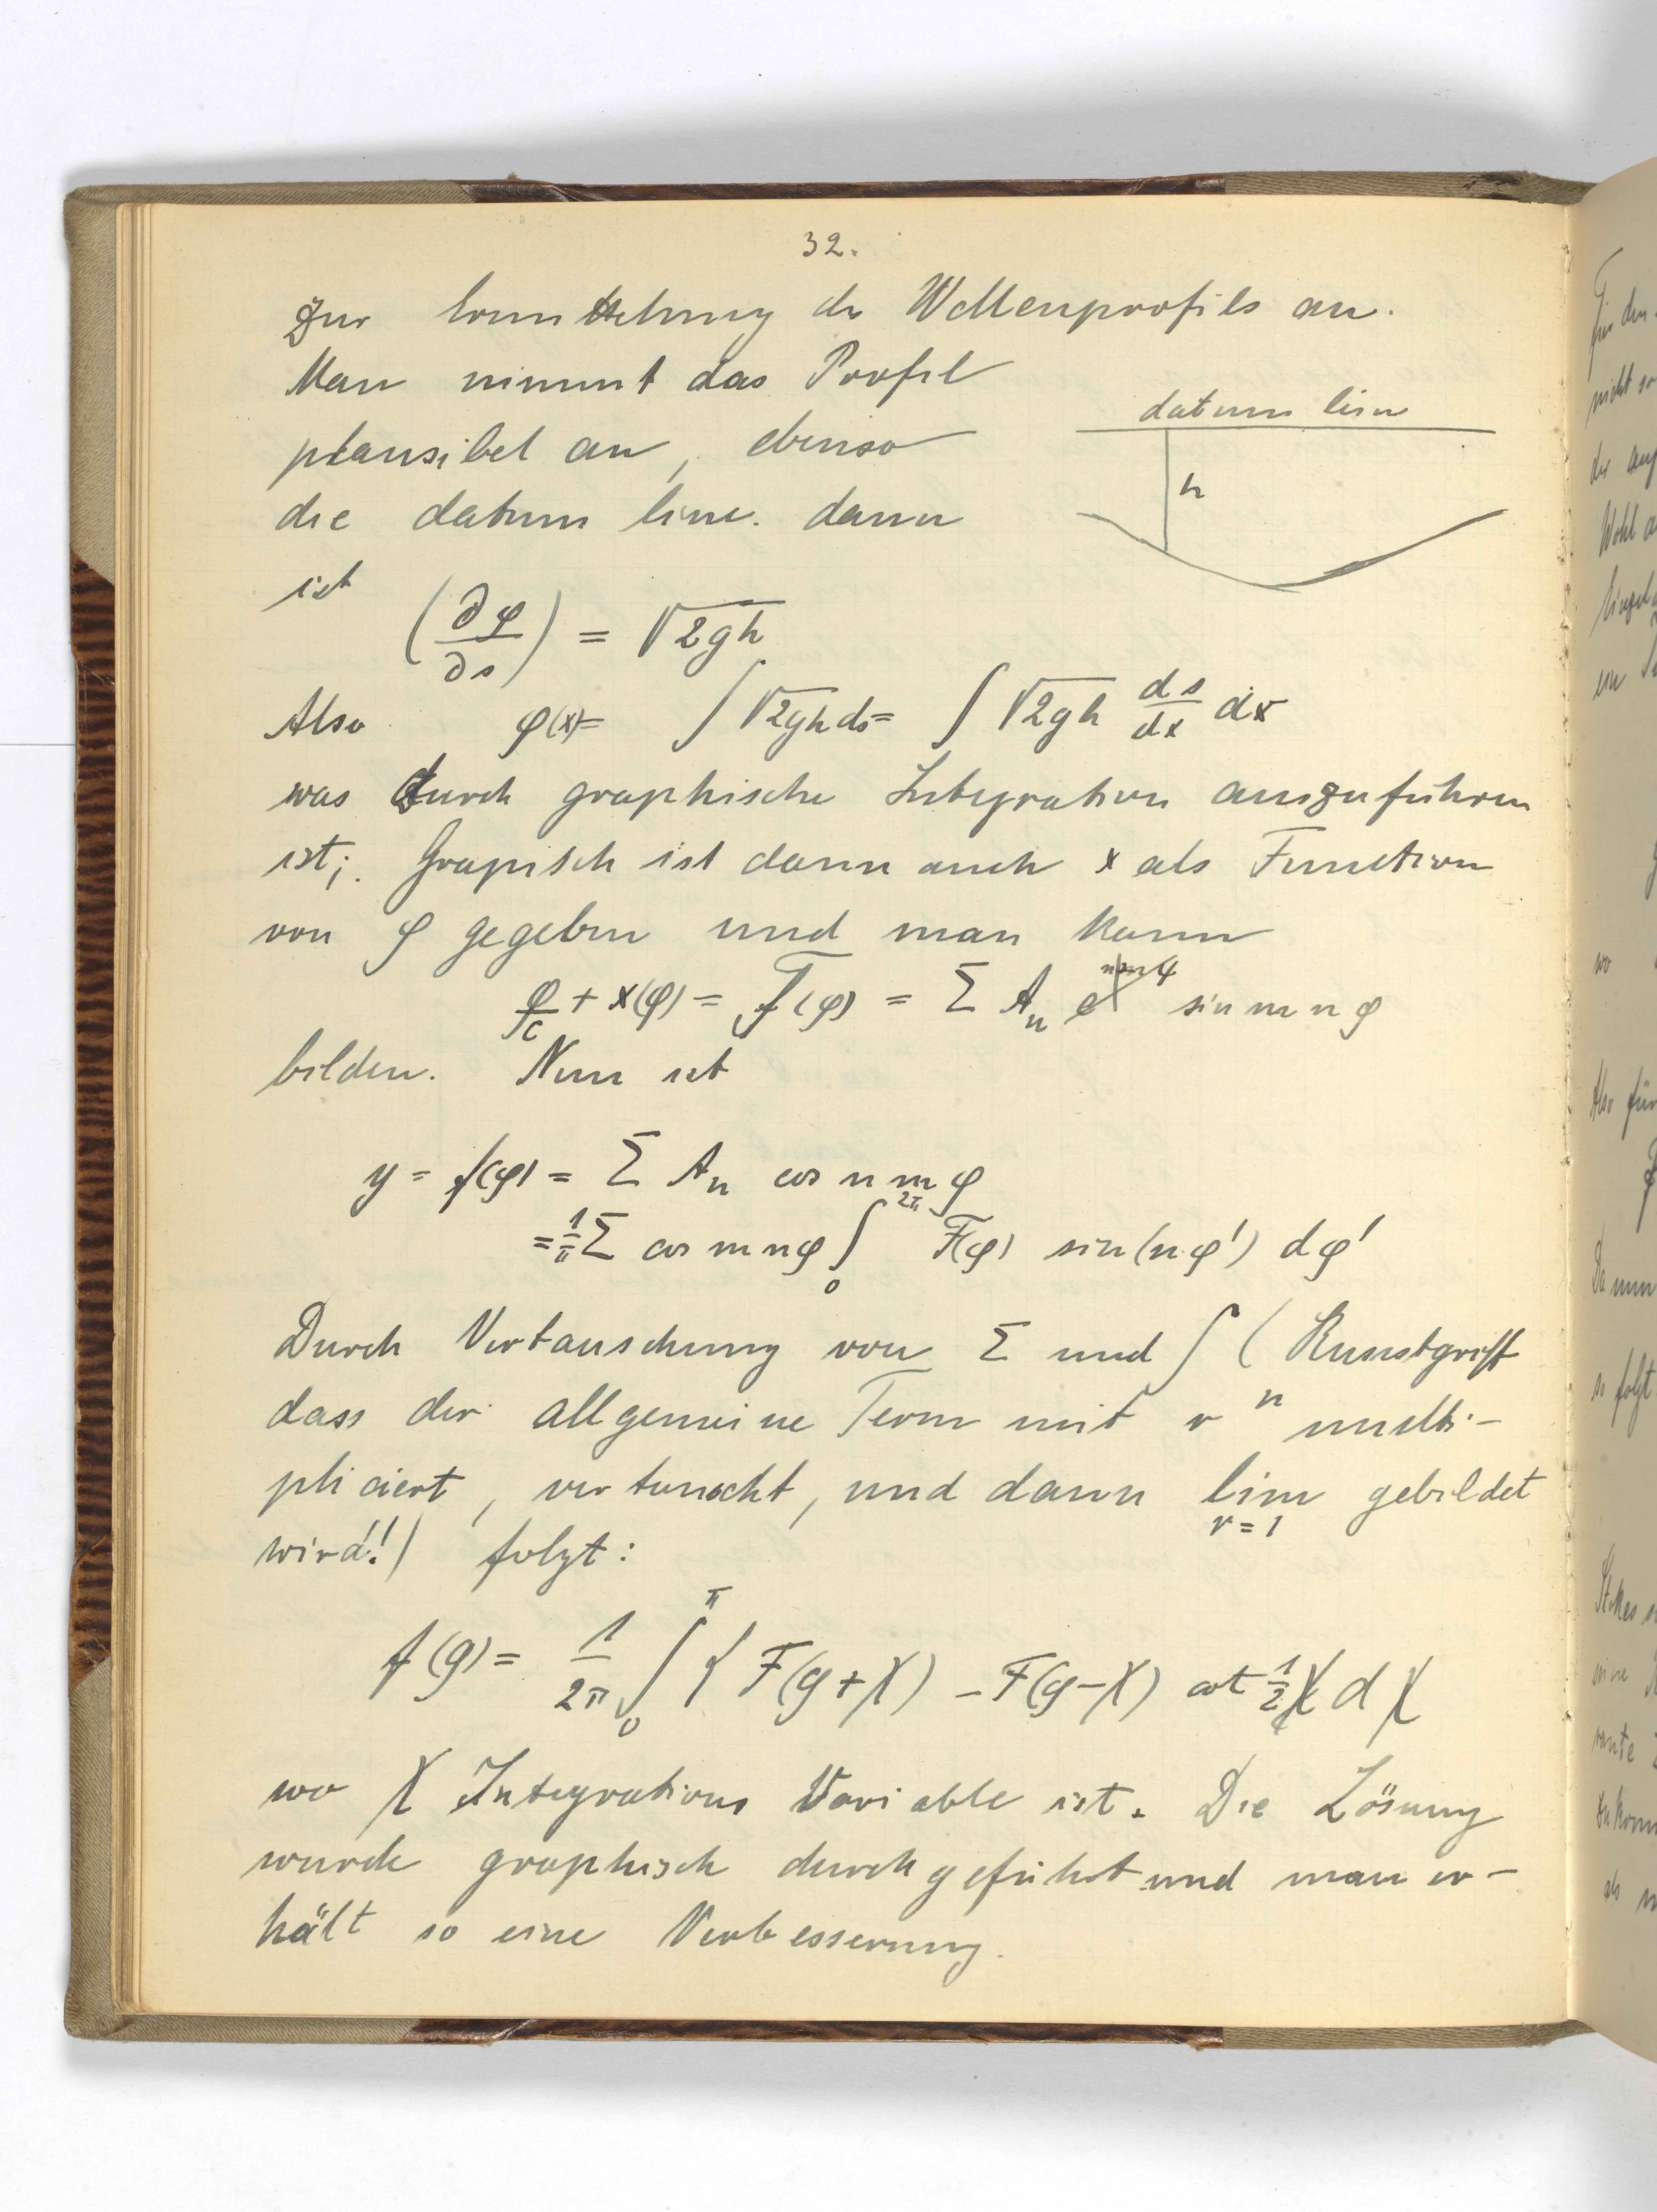 32.
Zur Ermittelung des Wellenprofils an.
Man nimmt das Profil
plausibel an, ebenso
die datum line. dann
datum line
h
ist
(∂φ/∂s) = √2gh
Also φ(x)= ∫ √2gh ds = ∫ √2gh ds/dx dx
was durch graphische Integration auszuführen
ist; Grapisch ist dann auch x als Function
von φ gegeben und man kann
φ/c + x(φ) = F(φ) = Σ Aₙ sin m n φ
bilden. Nun ist
y = f(φ) = Σ Aₙ cos n m φ
= 1/π Σ cos m n φ ∫₀^2π F(φ) sin(n φ') dφ'
Durch Vertauschung von Σ und ∫ (Kunstgriff
dass der allgemeine Term mit rⁿ multi-
pliciert, vertauscht, und dann lim gebildet
r = 1
wird!) folgt:
f(φ) = 1/2π ∫₀^π { F(φ+χ) - F(φ-χ) cot 1/2 χ d χ
wo χ Integrations Variable ist. Die Lösung
wurde graphisch durchgeführt und man er-
hält so eine Verbesserung.